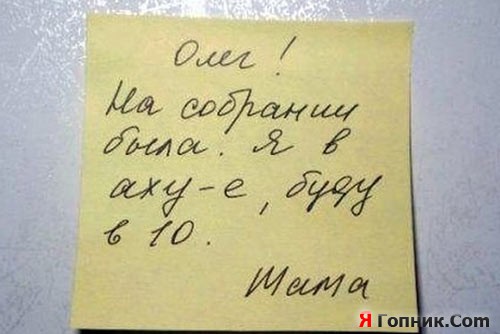 Олег!
На собрании
была. Я в
аху-е, буду
в 10.
Мама
Я Гопник.Com